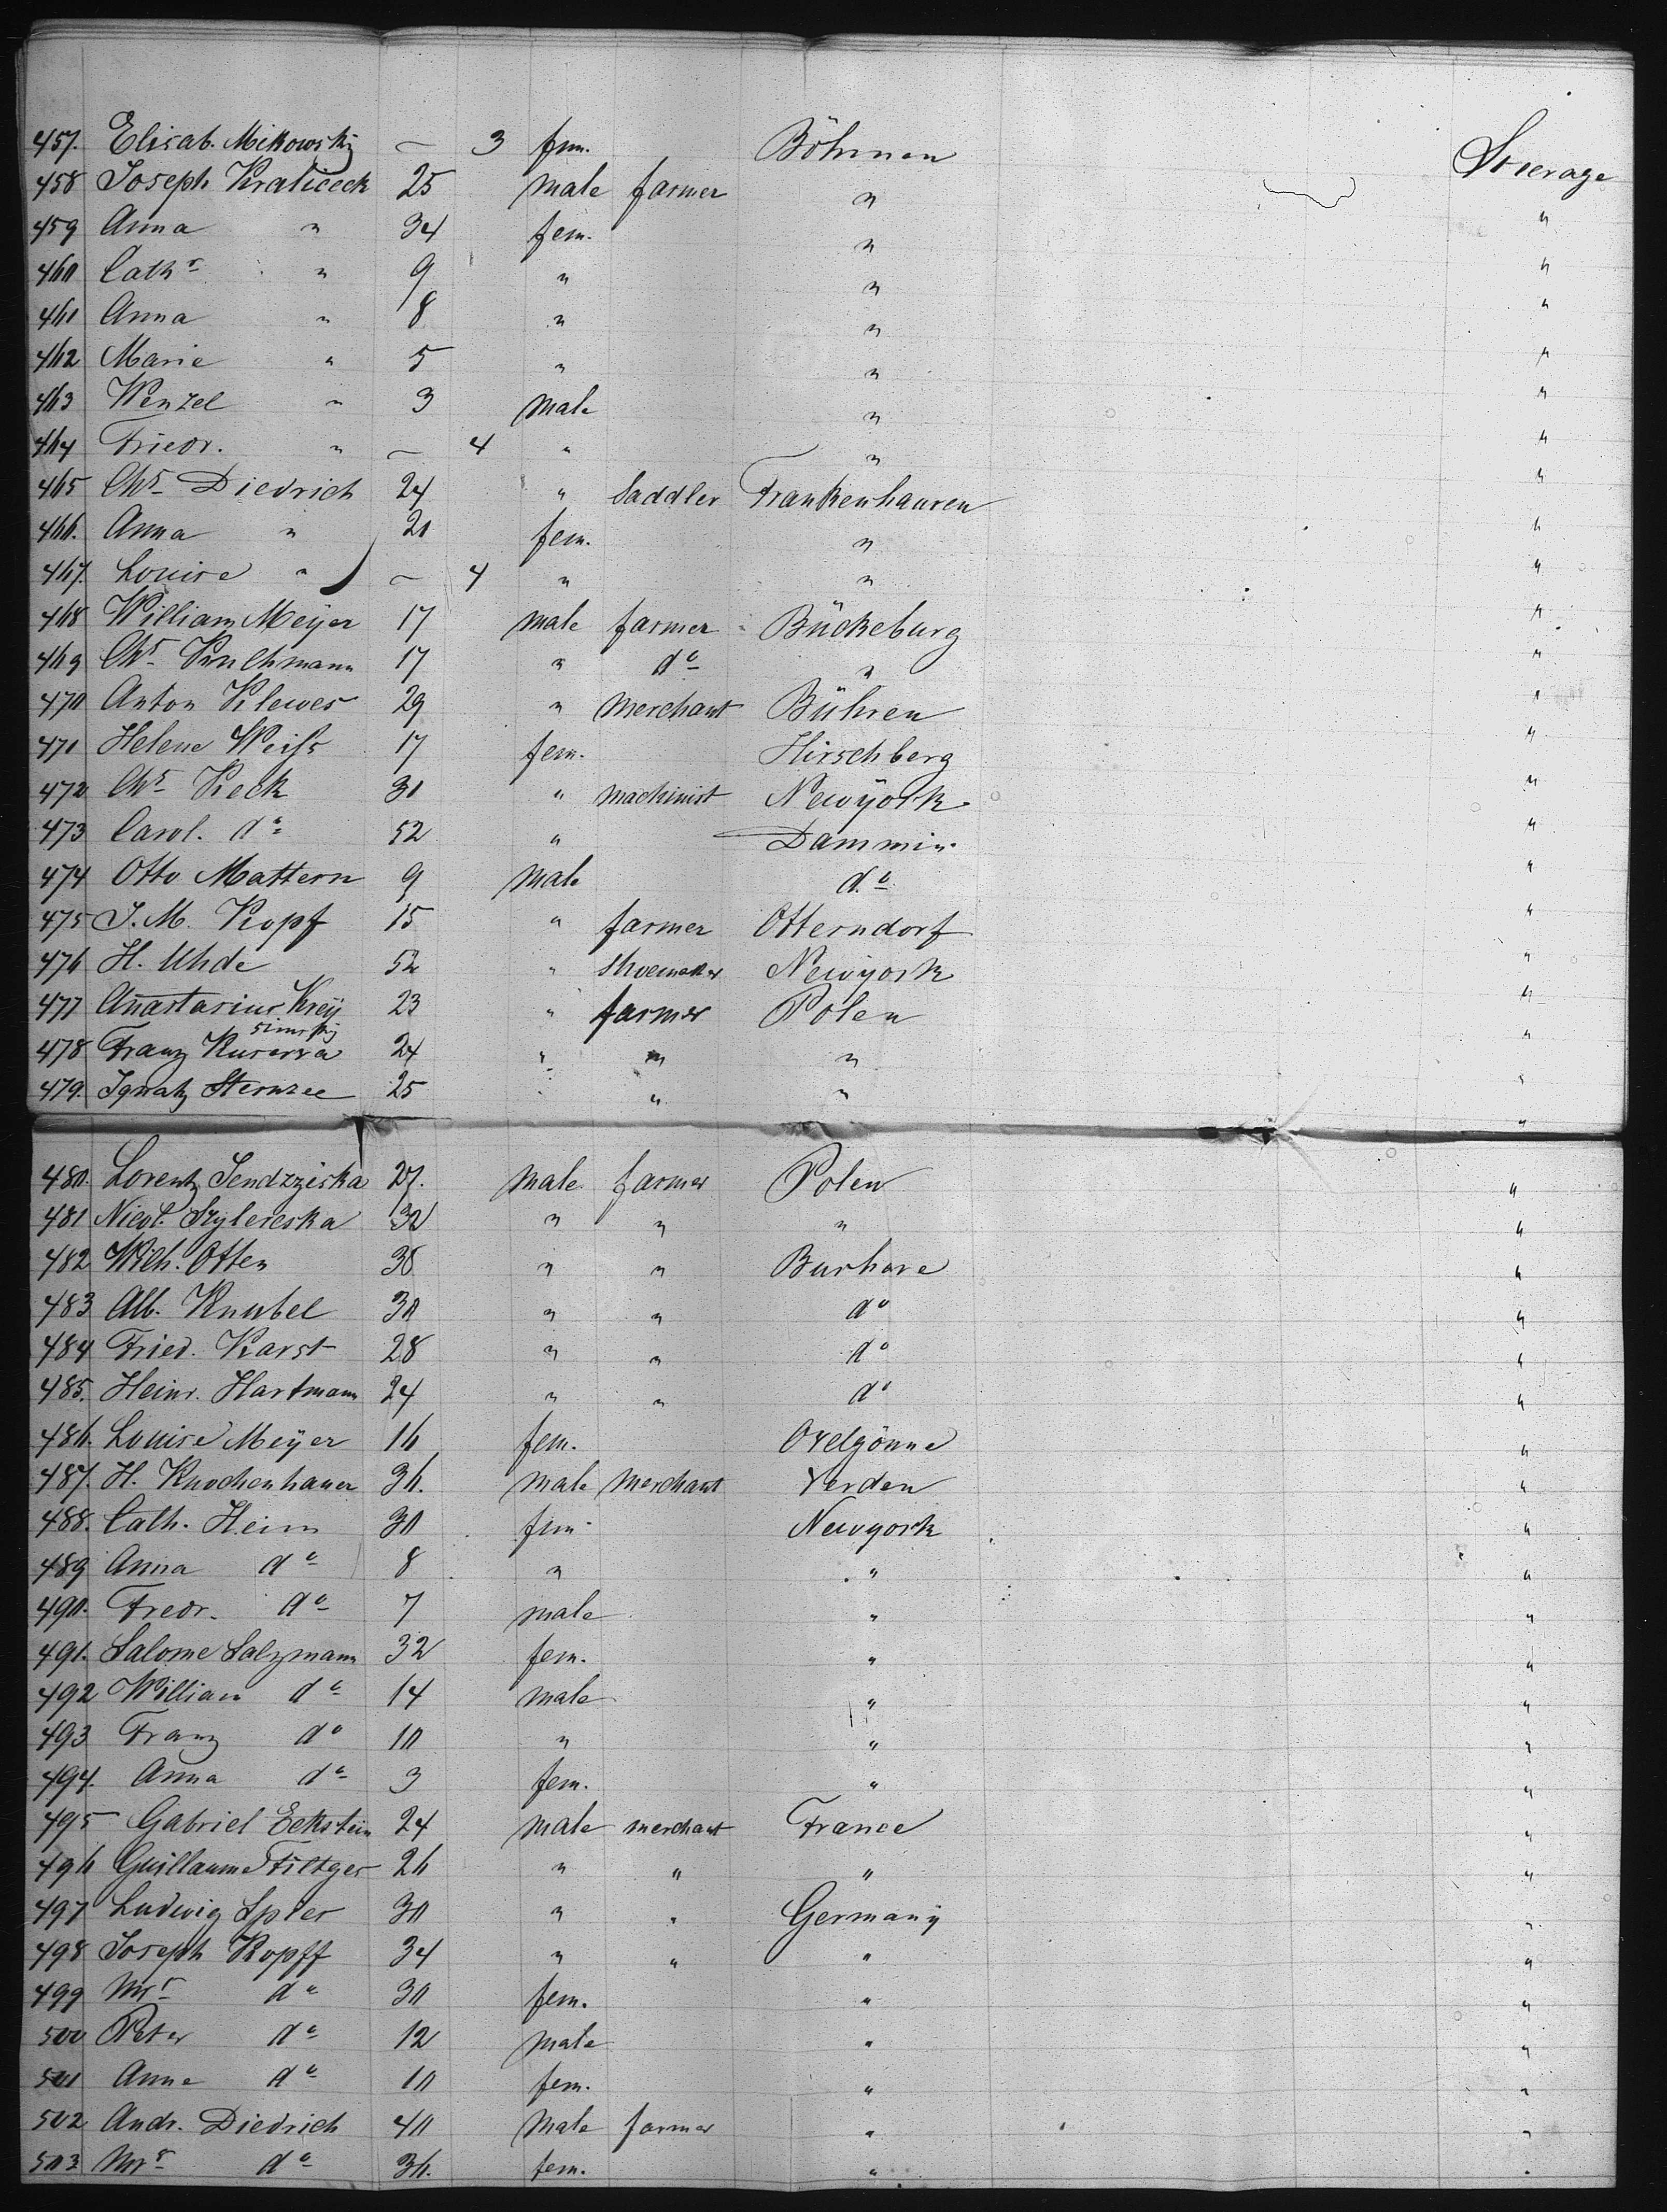 457. Elisab. Mikowskÿ — 3 fem. Böhmen Steerage
458 Joseph Kraliceck 25 male farmer " "
459 Anna " 34 fem. " "
460 Cathr " 9 " " "
461 Anna " 8 " " "
462 Marie " 5 " " "
463 Wenzel " 3 male " "
464 Friedr. " — 4 " " "
465 Chr Diedrich 24 " Saddler Frankenhausen "
466. Anna " 20 fem. " "
467. Louise " — 4 " " "
468 William Meÿer 17 male farmer Bückeburg "
469 Chr Kruthmann 17 " do " "
470 Anton Klewes 29 " merchant Bühren "
471 Helene Weiſs 17 fem. Hirschberg "
472 Chr Keck 30 " machinist Newÿork "
473 Carol. do 52 " Dammin "
474 Otto Mattern 9 male do "
475 J. M. Kopf 15 " farmer Otterndorf "
476 H. Uhde 52 " shoemaker Newÿork "
477 Anastasius Kreÿ 23 " farmer Polen "
simskÿ
478 Franz Kuserra 24 " " " "
479. Ignatz Sternzee 25 " " " "
480. Lorentz Sendzziska 27. male farmer Polen "
481 Nicol. Szylereska 32 " " " "
482 Wilh. Otten 38 " " Burhave "
483 Alb. Knubel 30 " " do "
484 Fried. Karst 28 " " do "
485. Heinr. Hartmann 24 " " do "
486. Louise Meÿer 16 fem. Ovelgönne "
487. H. Knochenhauer 36. male merchant Verden "
488. Cath. Heim 30 fem. Newyork "
489 Anna do 8 " " "
490. Fredr. do 7 male " "
491. Salome Salzmann 32 fem. " "
492 William do 14 male " "
493 Franz do 10 " " "
494. Anna do 3 fem. " "
495 Gabriel Eckstein 24 male merchant France "
496 Guillaume Filtges 26 " " " "
497 Ludwig Spies 30 " " Germanÿ "
498 Joseph Kopff 34 " " " "
499 Mrs do 30 fem. " "
500 Peter do 12 male " "
501 Anna do 10 fem. " "
502 Andr. Diedrich 40 male farmer " "
503 Mrs do 36. fem. " "